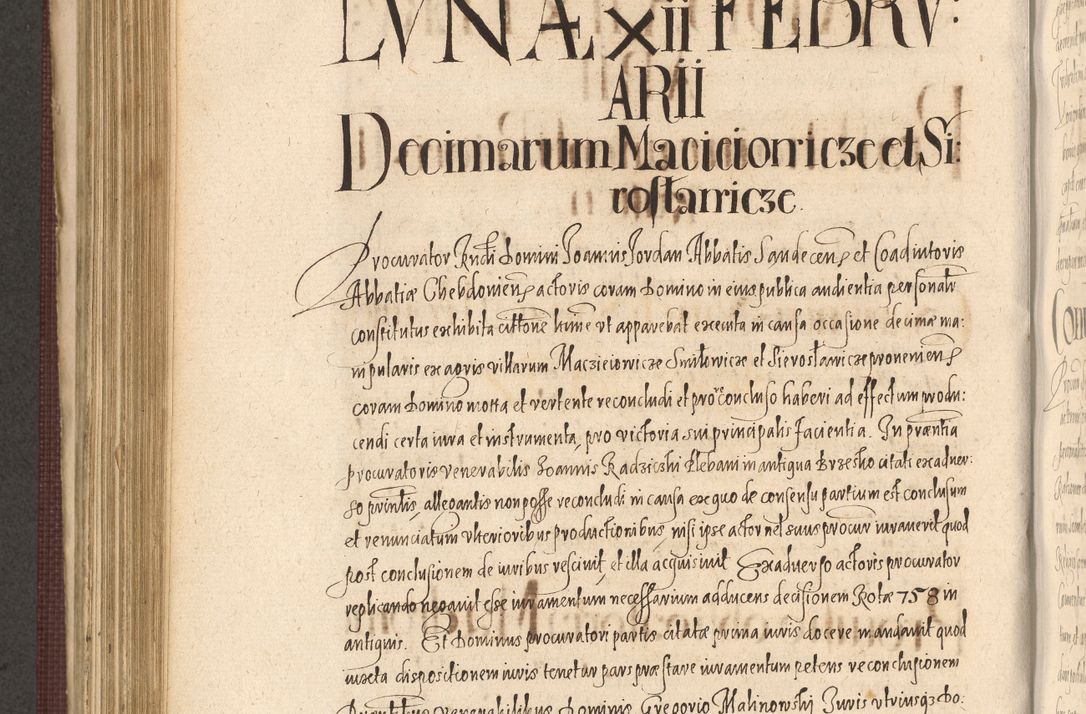 LVNÆ xii FEBRV:
ARII
Decimarum Macieiowicze et Si:
rostawicze.
Procurator Rndi Domini Joannis Jordan Abbatis Sandecen et Coadiutoris
Abbatiæ Chebdovien actoris coram Domino in eius publica audientia personalr
constitutus exhibita cittone hinc vt apparebat executa in causa occasione decimæ ma:
nipularis ex agris villarum Maczieiowicze Smilowicze et Sierostawicze provenien
coram Domino mota et vertente reconcludi et pro reconcluso haberi ad effectum produ:
cendi certa iura et instrumenta, pro victoria sui principalis facientia. In præntia
procuratoris venerabilis Joannis Radziczki Plebani in antiqua Brzesko citati ex adver:
so printis, allegantis non posse reconcludi in causa ex quo de consensu partium est conclusum
et renunciatum vlterioribus productionibus, nisi ipse actor vel suus procur iuraverit quod
post conclusionem de iuribus rescivit, et illa acquisivit. Ex adverso actoris procurator
replicando negavit esse iuramentum necessarium adducens decisionem Rotæ 758 in
antiquis. Et Dominus procuratori partis citatæ prima iuris docere mandavit quod
iuxta dispositionem iuris tenetur pars præstare iuramentum petens reconclusionem
Præntibus venerabilibus Dominis Gregorio Malinowski Juris vtriusqz Do: